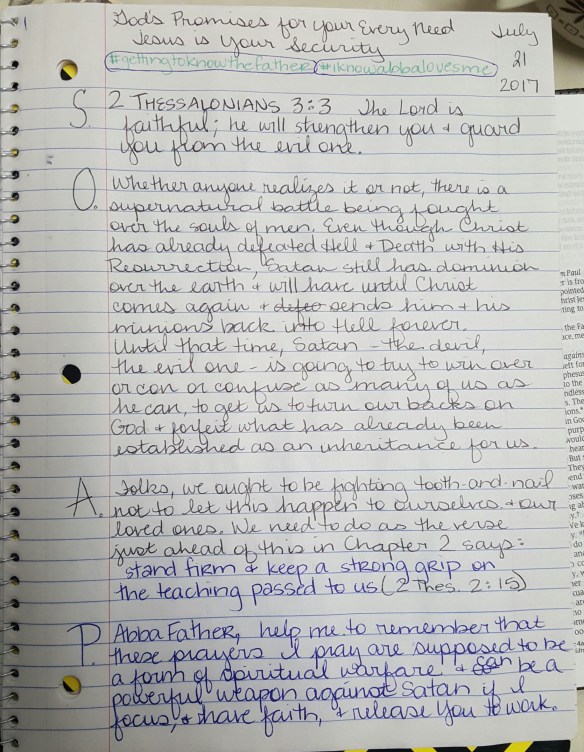 God's Promises for your Every Need
Jesus is Your Security
July
21
2017
#gettingtoknowthefather #iknowabbalovesme
S. 2 THESSALONIANS 3:3 The Lord is
faithful; he will strengthen you & guard
you from the evil one.
O. Whether anyone realizes it or not, there is a
supernatural battle being fought
over the souls of men. Even though Christ
has already defeated Hell & Death with His
Resurrection, Satan still has dominion
over the earth & will have until Christ
comes again & defeo sends him & his
minions back into Hell forever.
Until that time, Satan - the devil,
the evil one - is going to try to win over
or con or confuse as many of us as
he can, to get us to turn our backs on
God & forfeit what has already been
established as an inheritance for us.
A. Folks, we ought to be fighting tooth-and-nail
not to let this happen to ourselves & our
loved ones. We need to do as the verse
just ahead of this in Chapter 2 says:
stand firm & keep a strong grip on
the teaching passed to us (2 Thes. 2:15)
P. Abba Father, help me to remember that
these prayers I pray are supposed to be
a form of spiritual warfare & can be a
powerful weapon against Satan if I
focus, & have faith, & release You to work.